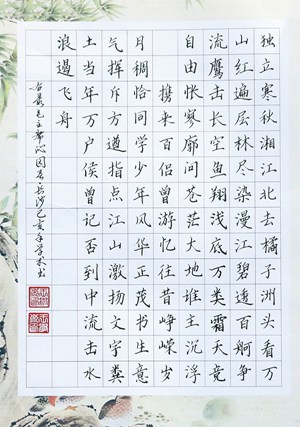 独立寒秋湘江北去橘子洲头看万
山红遍层林尽染漫江碧透百舸争
流鹰击长空鱼翔浅底万类霜天竞
自由怅寥廓问苍茫大地谁主沉浮
携来百侣曾游忆往昔峥嵘岁
月稠恰同学少年风华正茂书生意
气挥斥方遒指点江山激扬文字粪
土当年万户侯曾记否到中流击水
浪遏飞舟
右录毛主席沁园春长沙己亥年书